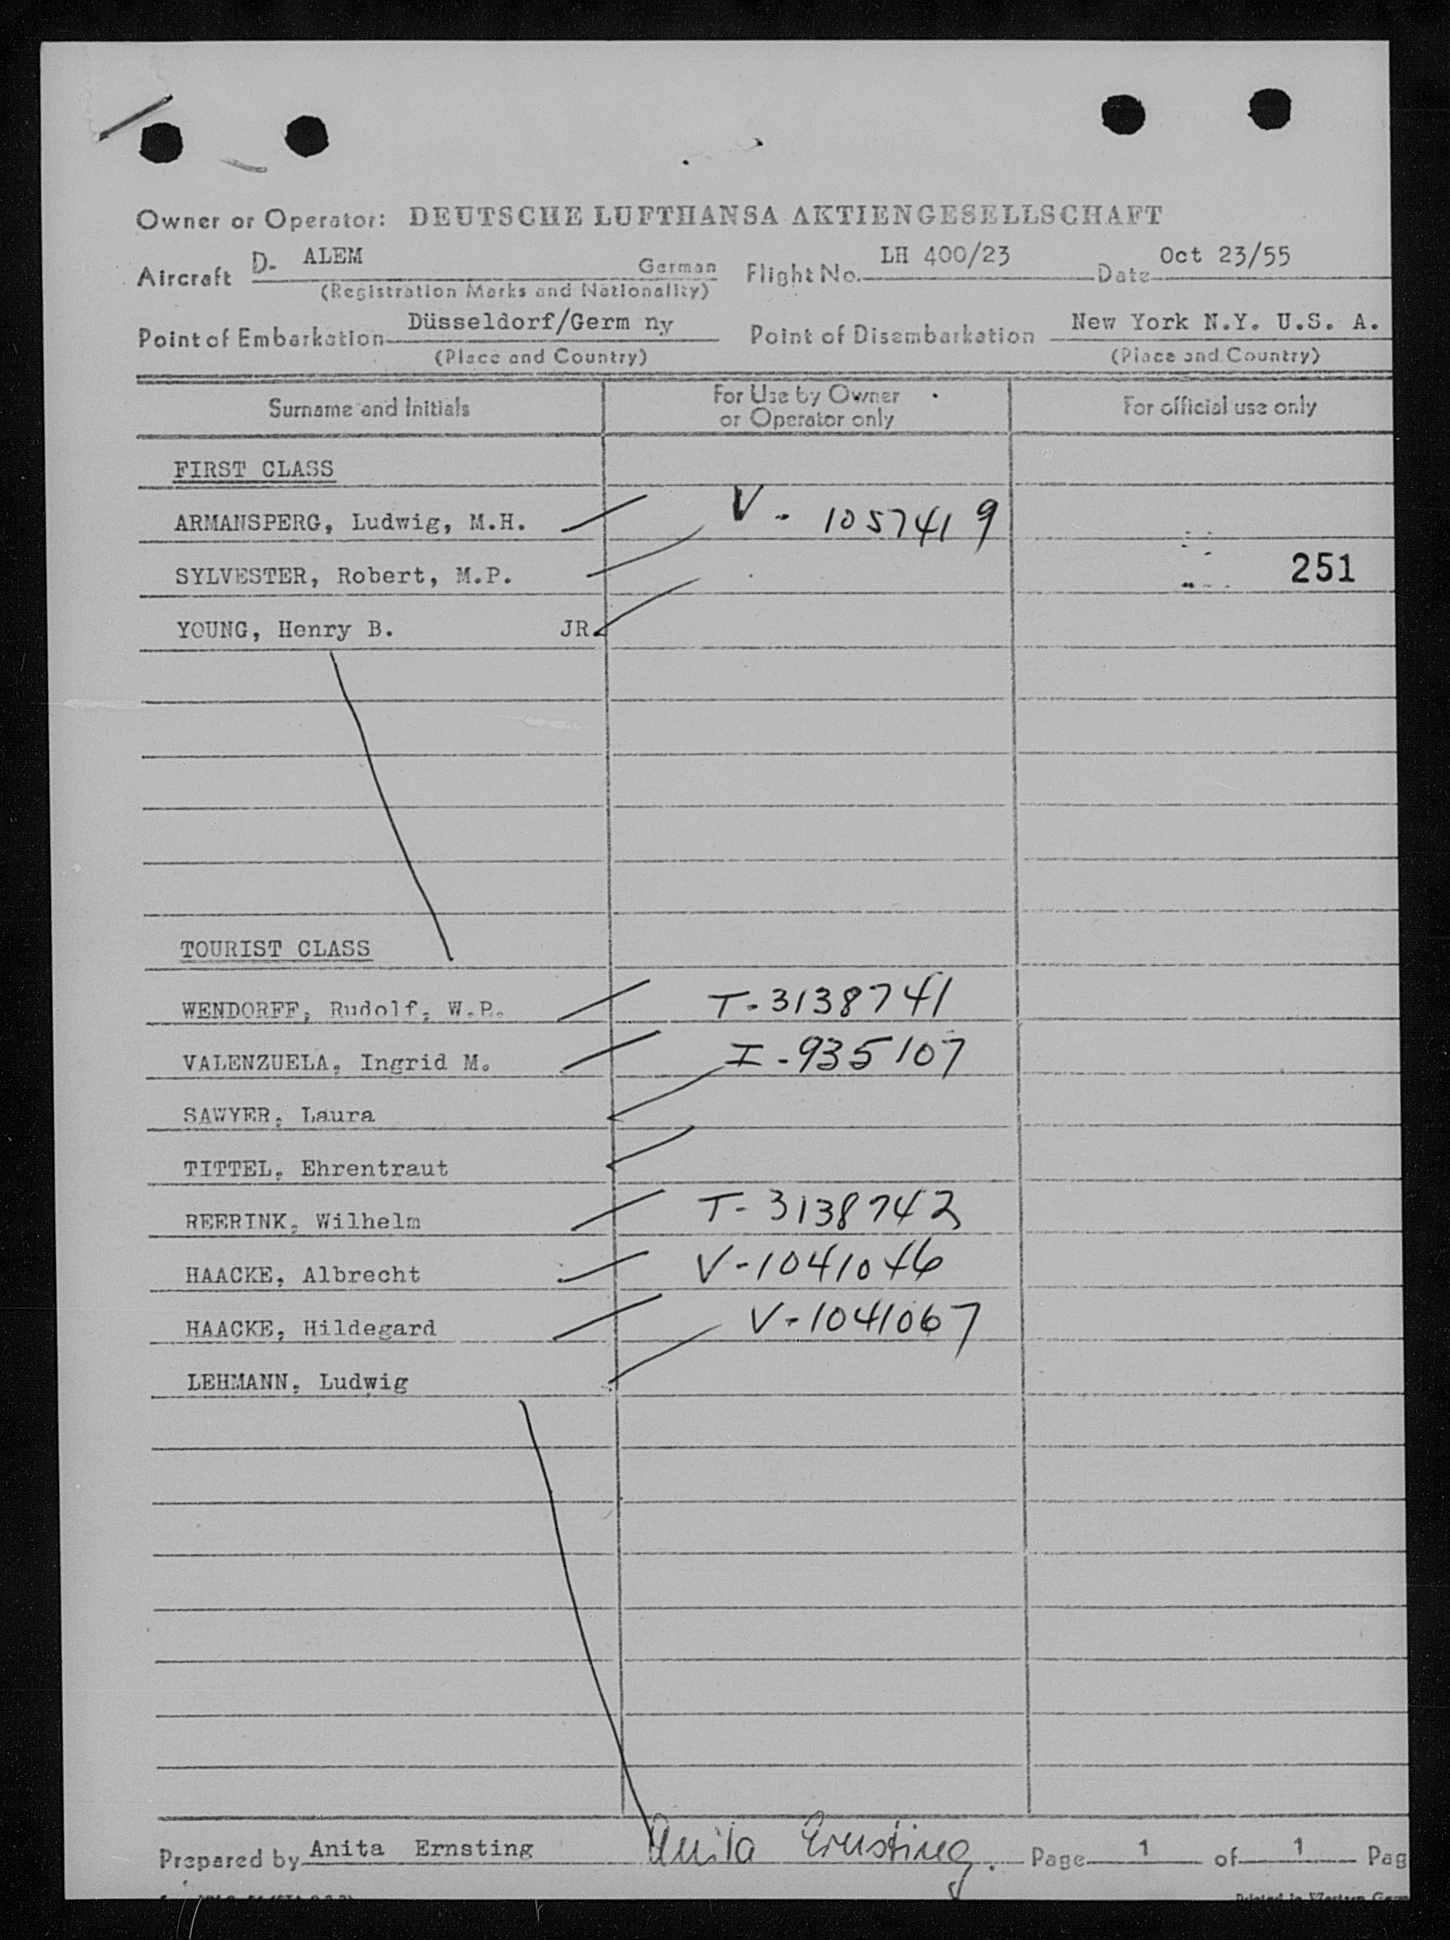 Owner or Operator: DEUTSCHE LUFTHANSA AKTIENGESELLSCHAFT
Aircraft D- ALEM German Flight No. LH 400/23 Date Oct 23/55
(Registration Marks and Nationality)
Point of Embarkation Düsseldorf/Germ ny Point of Disembarkation New York N.Y. U.S. A.
(Place and Country) (Place and Country)
Surname and Initials For Use by Owner or Operator only For official use only
FIRST CLASS
ARMANSPERG, Ludwig, M.H. V - 1057419
SYLVESTER, Robert, M.P. 251
YOUNG, Henry B. JR
TOURIST CLASS
WENDORFF, Rudolf, W.P. T-3138741
VALENZUELA, Ingrid M. I-935107
SAWYER, Laura
TITTEL, Ehrentraut
REERINK, Wilhelm T-3138742
HAACKE, Albrecht V-1041046
HAACKE, Hildegard V-1041067
LEHMANN, Ludwig
Prepared by Anita Ernsting Anita Ernsting. Page 1 of 1 Pag
Printed in Western